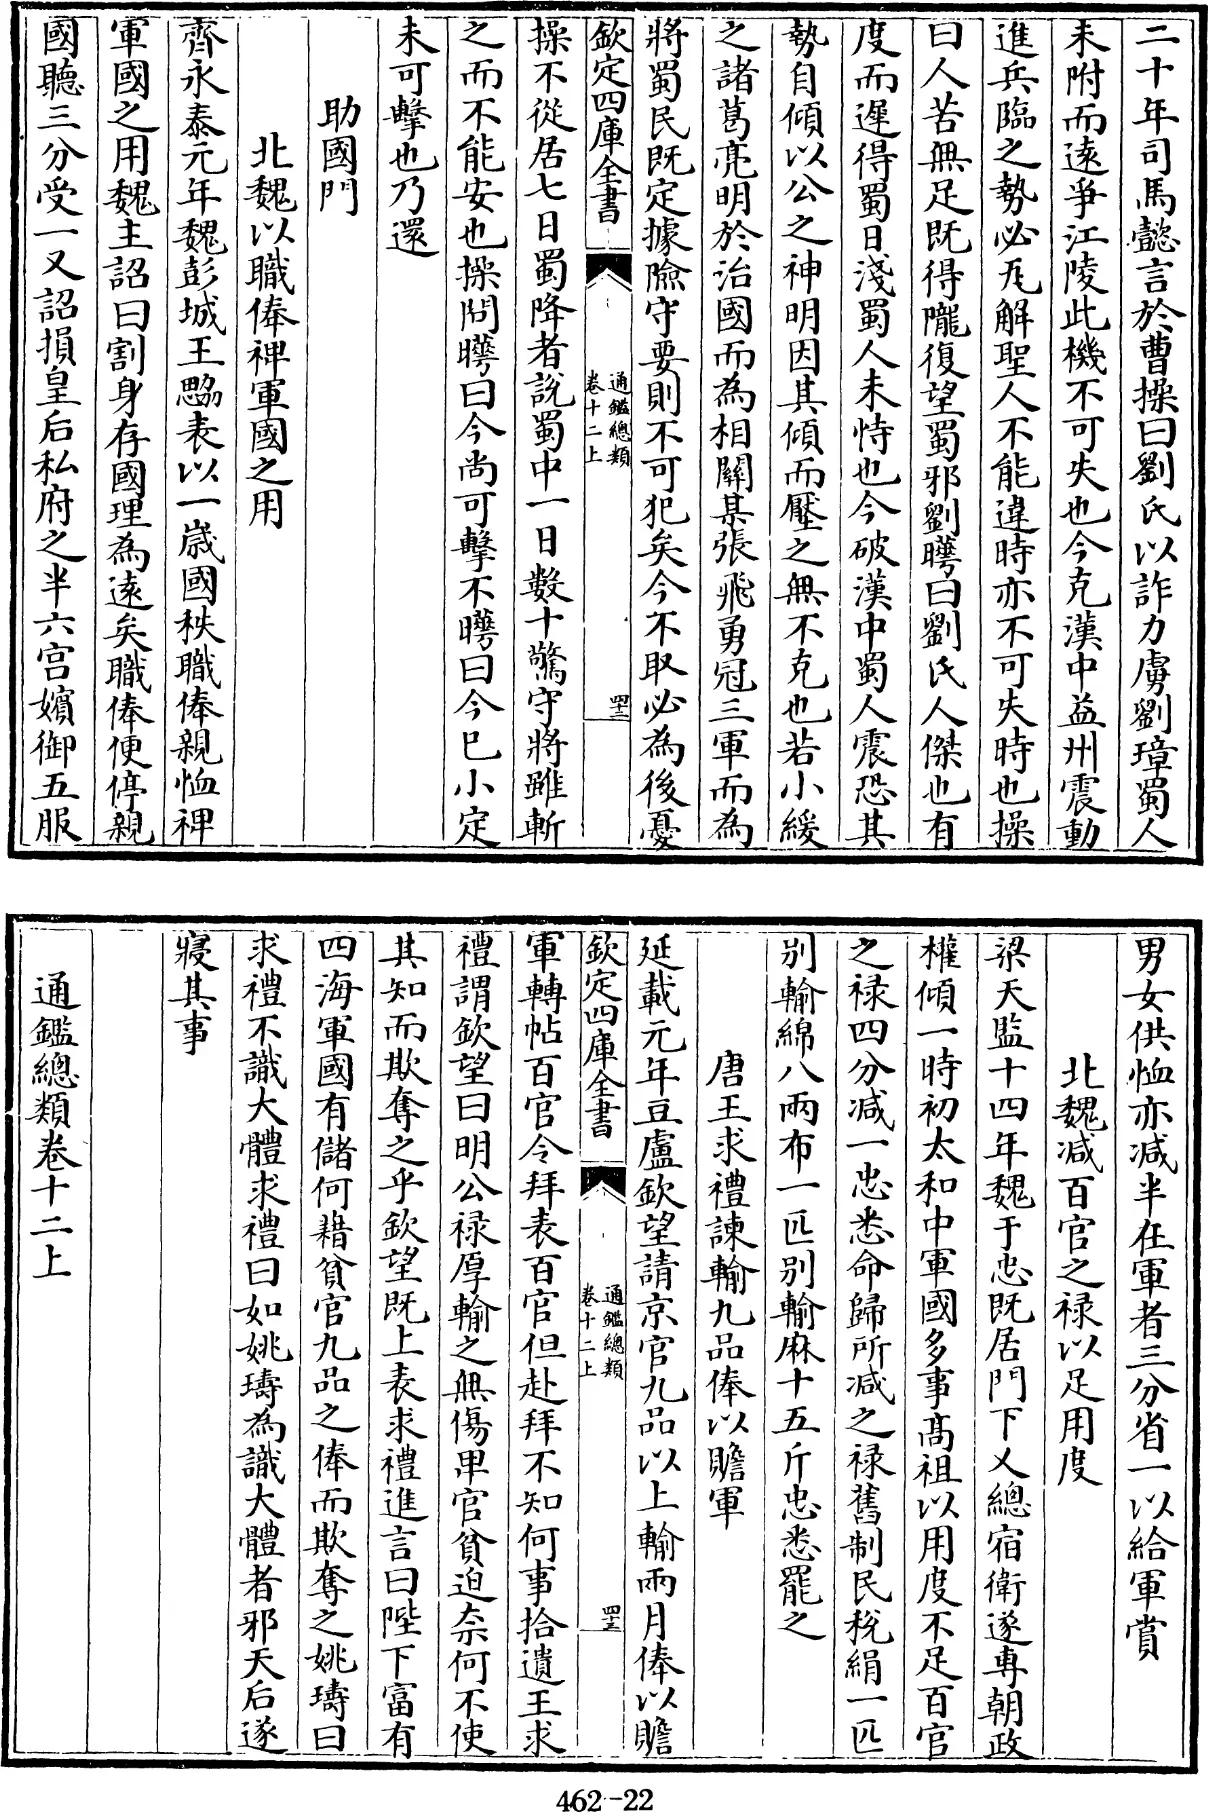 二十年司馬懿言於曹操曰劉氏以詐力虜劉璋蜀人
未附而遠爭江陵此機不可失也今克漢中益州震動
進兵臨之勢必瓦解聖人不能違時亦不可失時也操
曰人苦無足既得隴復望蜀邪劉曄曰劉氏人傑也有
度而遲得蜀日淺蜀人未恃也今破漢中蜀人震恐其
勢自傾以公之神明因其傾而壓之無不克也若小緩
之諸葛亮明於治國而為相關某張飛勇冠三軍而為
將蜀民既定據險守要則不可犯矣今不取必為後憂
欽定四庫全書
通鑑總類
卷十二上
四十二
操不從居七日蜀降者說蜀中一日數十驚守將雖斬
之而不能安也操問曄曰今尚可擊不曄曰今已小定
未可擊也乃還
助國門
北魏以職俸裨軍國之用
齊永泰元年魏彭城王勰表以一歲國秩職俸親恤裨
軍國之用魏主詔曰割身存國理為遠矣職俸便停親
國聽三分受一又詔損皇后私府之半六宮嬪御五服
男女供恤亦減半在軍者三分省一以給軍賞
北魏減百官之祿以足用度
梁天監十四年魏于忠既居門下又總宿衛遂専朝政
權傾一時初太和中軍國多事髙祖以用度不足百官
之祿四分減一忠悉命歸所減之祿舊制民稅絹一匹
別輸綿八兩布一匹別輸麻十五斤忠悉罷之
唐王求禮諫輸九品俸以贍軍
延載元年豆盧欽望請京官九品以上輸兩月俸以贍
欽定四庫全書
通鑑總類
卷十二上
四十三
軍轉帖百官令拜表百官但赴拜不知何事拾遺王求
禮謂欽望曰明公祿厚輸之無傷卑官貧迫柰何不使
其知而欺奪之乎欽望既上表求禮進言曰陛下富有
四海軍國有儲何藉貧官九品之俸而欺奪之姚璹曰
求禮不識大體求禮曰如姚璹為識大體者邪天后遂
寢其事
通鑑總類卷十二上
462-22